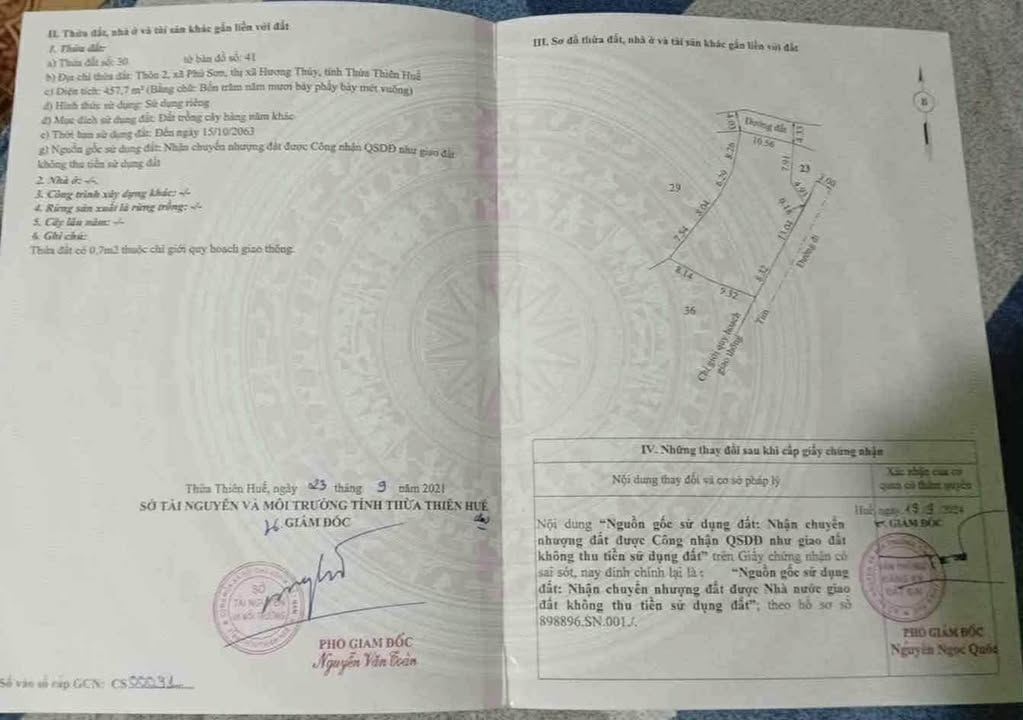 II. Thửa đất, nhà ở và tài sản khác gắn liền với đất
1. Thửa đất:
a) Thửa đất số: 30 tờ bản đồ số: 41
b) Địa chỉ thửa đất: Thôn 2, xã Phú Sơn, thị xã Hương Thủy, tỉnh Thừa Thiên Huế
c) Diện tích: 457,7 m² (Bằng chữ: Bốn trăm năm mươi bảy phẩy bảy mét vuông)
d) Hình thức sử dụng: Sử dụng riêng
đ) Mục đích sử dụng đất: Đất trồng cây hàng năm khác
e) Thời hạn sử dụng đất: Đến ngày 15/10/2063
g) Nguồn gốc sử dụng đất: Nhận chuyển nhượng đất được Công nhận QSDĐ như giao đất
không thu tiền sử dụng đất
2. Nhà ở: -/-
3. Công trình xây dựng khác: -/-
4. Rừng sản xuất là rừng trồng: -/-
5. Cây lâu năm: -/-
6. Ghi chú:
Thửa đất có 0,7m2 thuộc chỉ giới quy hoạch giao thông.
Thừa Thiên Huế, ngày 23 tháng 9 năm 2021
SỞ TÀI NGUYÊN VÀ MÔI TRƯỜNG TỈNH THỪA THIÊN HUẾ
GIÁM ĐỐC
SỞ
TÀI NGUYÊN
VÀ MÔI TRƯỜNG
PHÓ GIÁM ĐỐC
Nguyễn Văn Toàn
Số vào sổ cấp GCN: CS 00091
III. Sơ đồ thửa đất, nhà ở và tài sản khác gắn liền với đất
B
4.03
Đường đất
4.33
10.56
8.26
7.91
23
6.29
4.93
2.00
29
5.04
9.18
7.54
11.04
Đường đi
8.14
8.32
9.52
36
Tim
Chỉ giới quy hoạch
giao thông
IV. Những thay đổi sau khi cấp giấy chứng nhận
Nội dung thay đổi và cơ sở pháp lý
Xác nhận của cơ
quan có thẩm quyền
Nội dung “Nguồn gốc sử dụng đất: Nhận chuyển
nhượng đất được Công nhận QSDĐ như giao đất
không thu tiền sử dụng đất” trên Giấy chứng nhận có
sai sót, nay đính chính lại là : “Nguồn gốc sử dụng
đất: Nhận chuyển nhượng đất được Nhà nước giao
đất không thu tiền sử dụng đất”; theo hồ sơ số
898896.SN.001./.
Huế, ngày 19 9 2024
GIÁM ĐỐC
PHÓ GIÁM ĐỐC
Nguyễn Ngọc Quốc